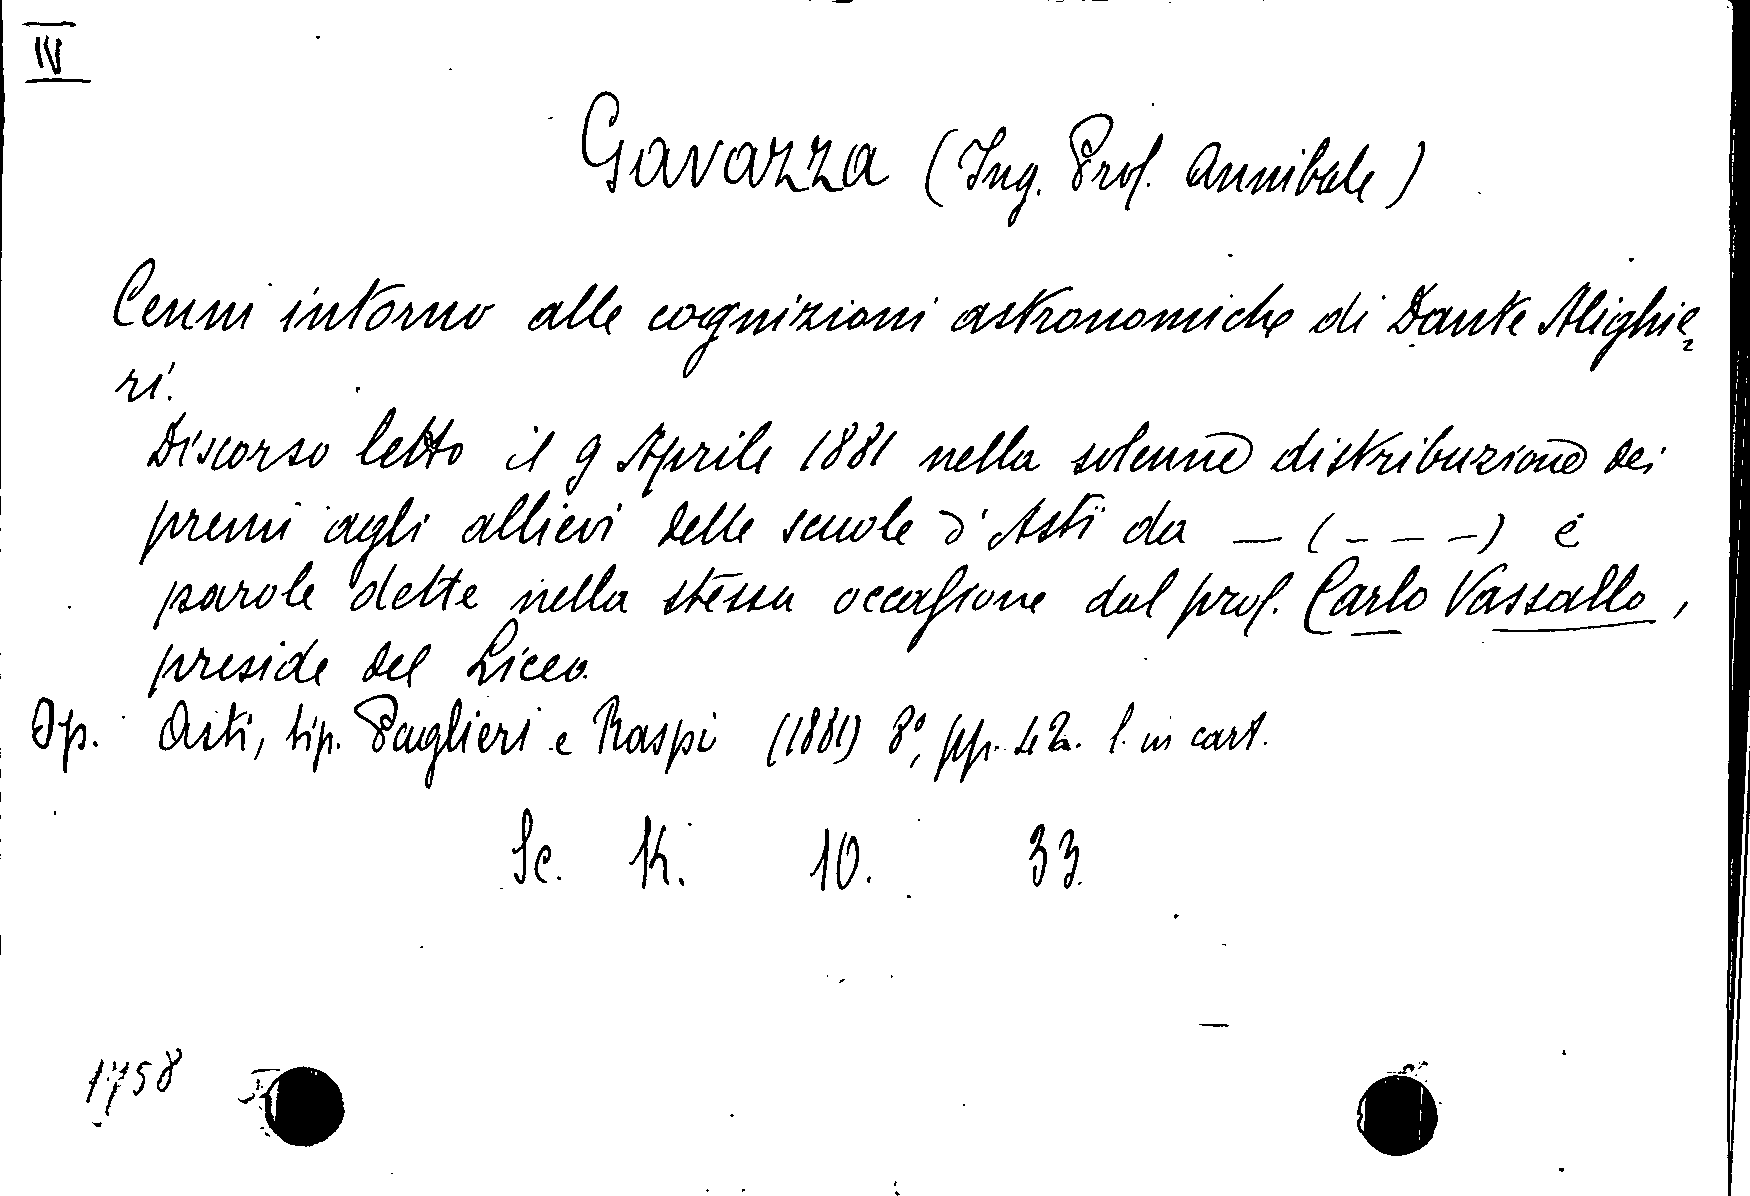 IV
Gavazza (Ing. Prof. Annibale)
Cenni intorno alle cognizioni astronomiche di Dante Alighie=
ri.
Discorso letto il 9 Aprile 1881 nella solenne distribuzione dei
premi agli allievi delle scuole d'Asti da — (– – – –) e
parole dette nella stessa occasione dal prof. Carlo Vassallo,
preside del Liceo.
Op. Asti, tip. Paglieri e Raspi (1881) 8°, pp. 42. l. in cart.
Sc. K. 10. 33.
1758